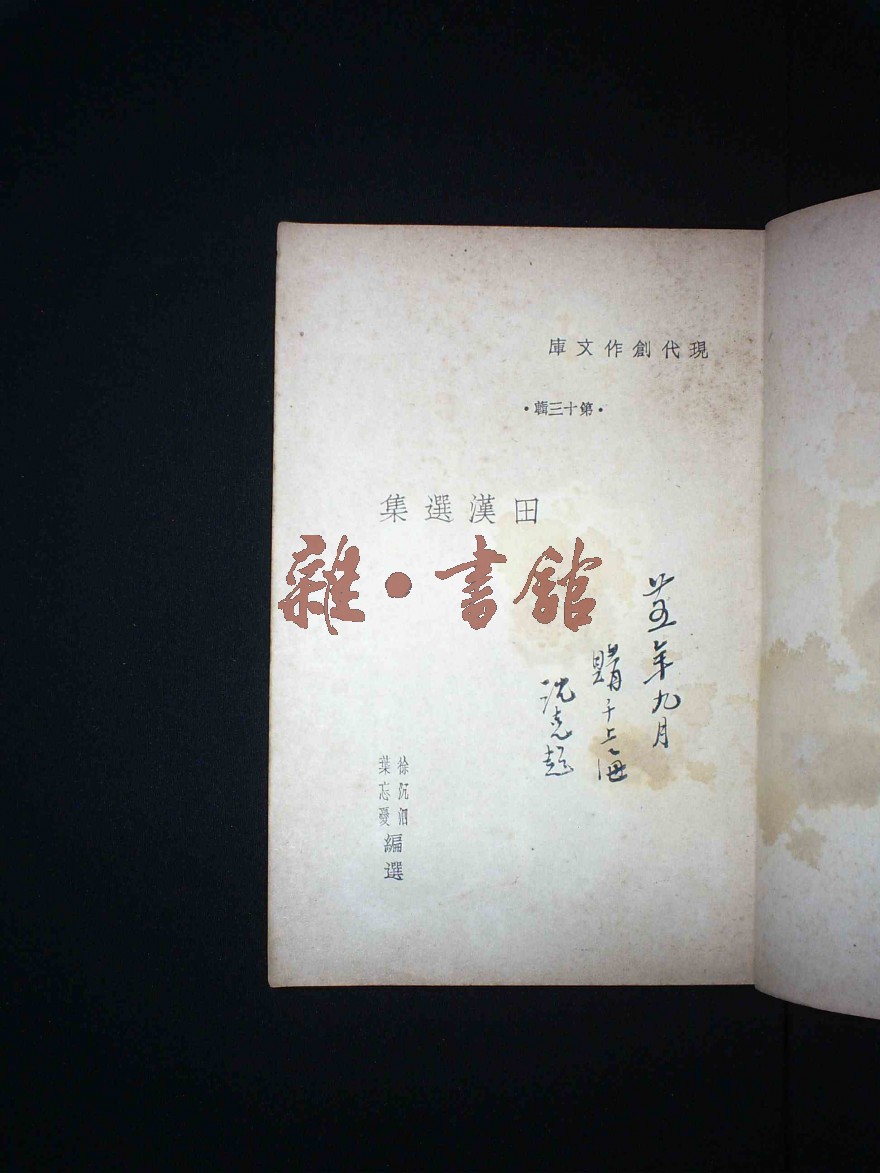 現代創作文庫
•第十三輯•
田漢選集
雜•書館
廿五年九月
購于上海
沈克
徐沉泗
葉忘憂
編選